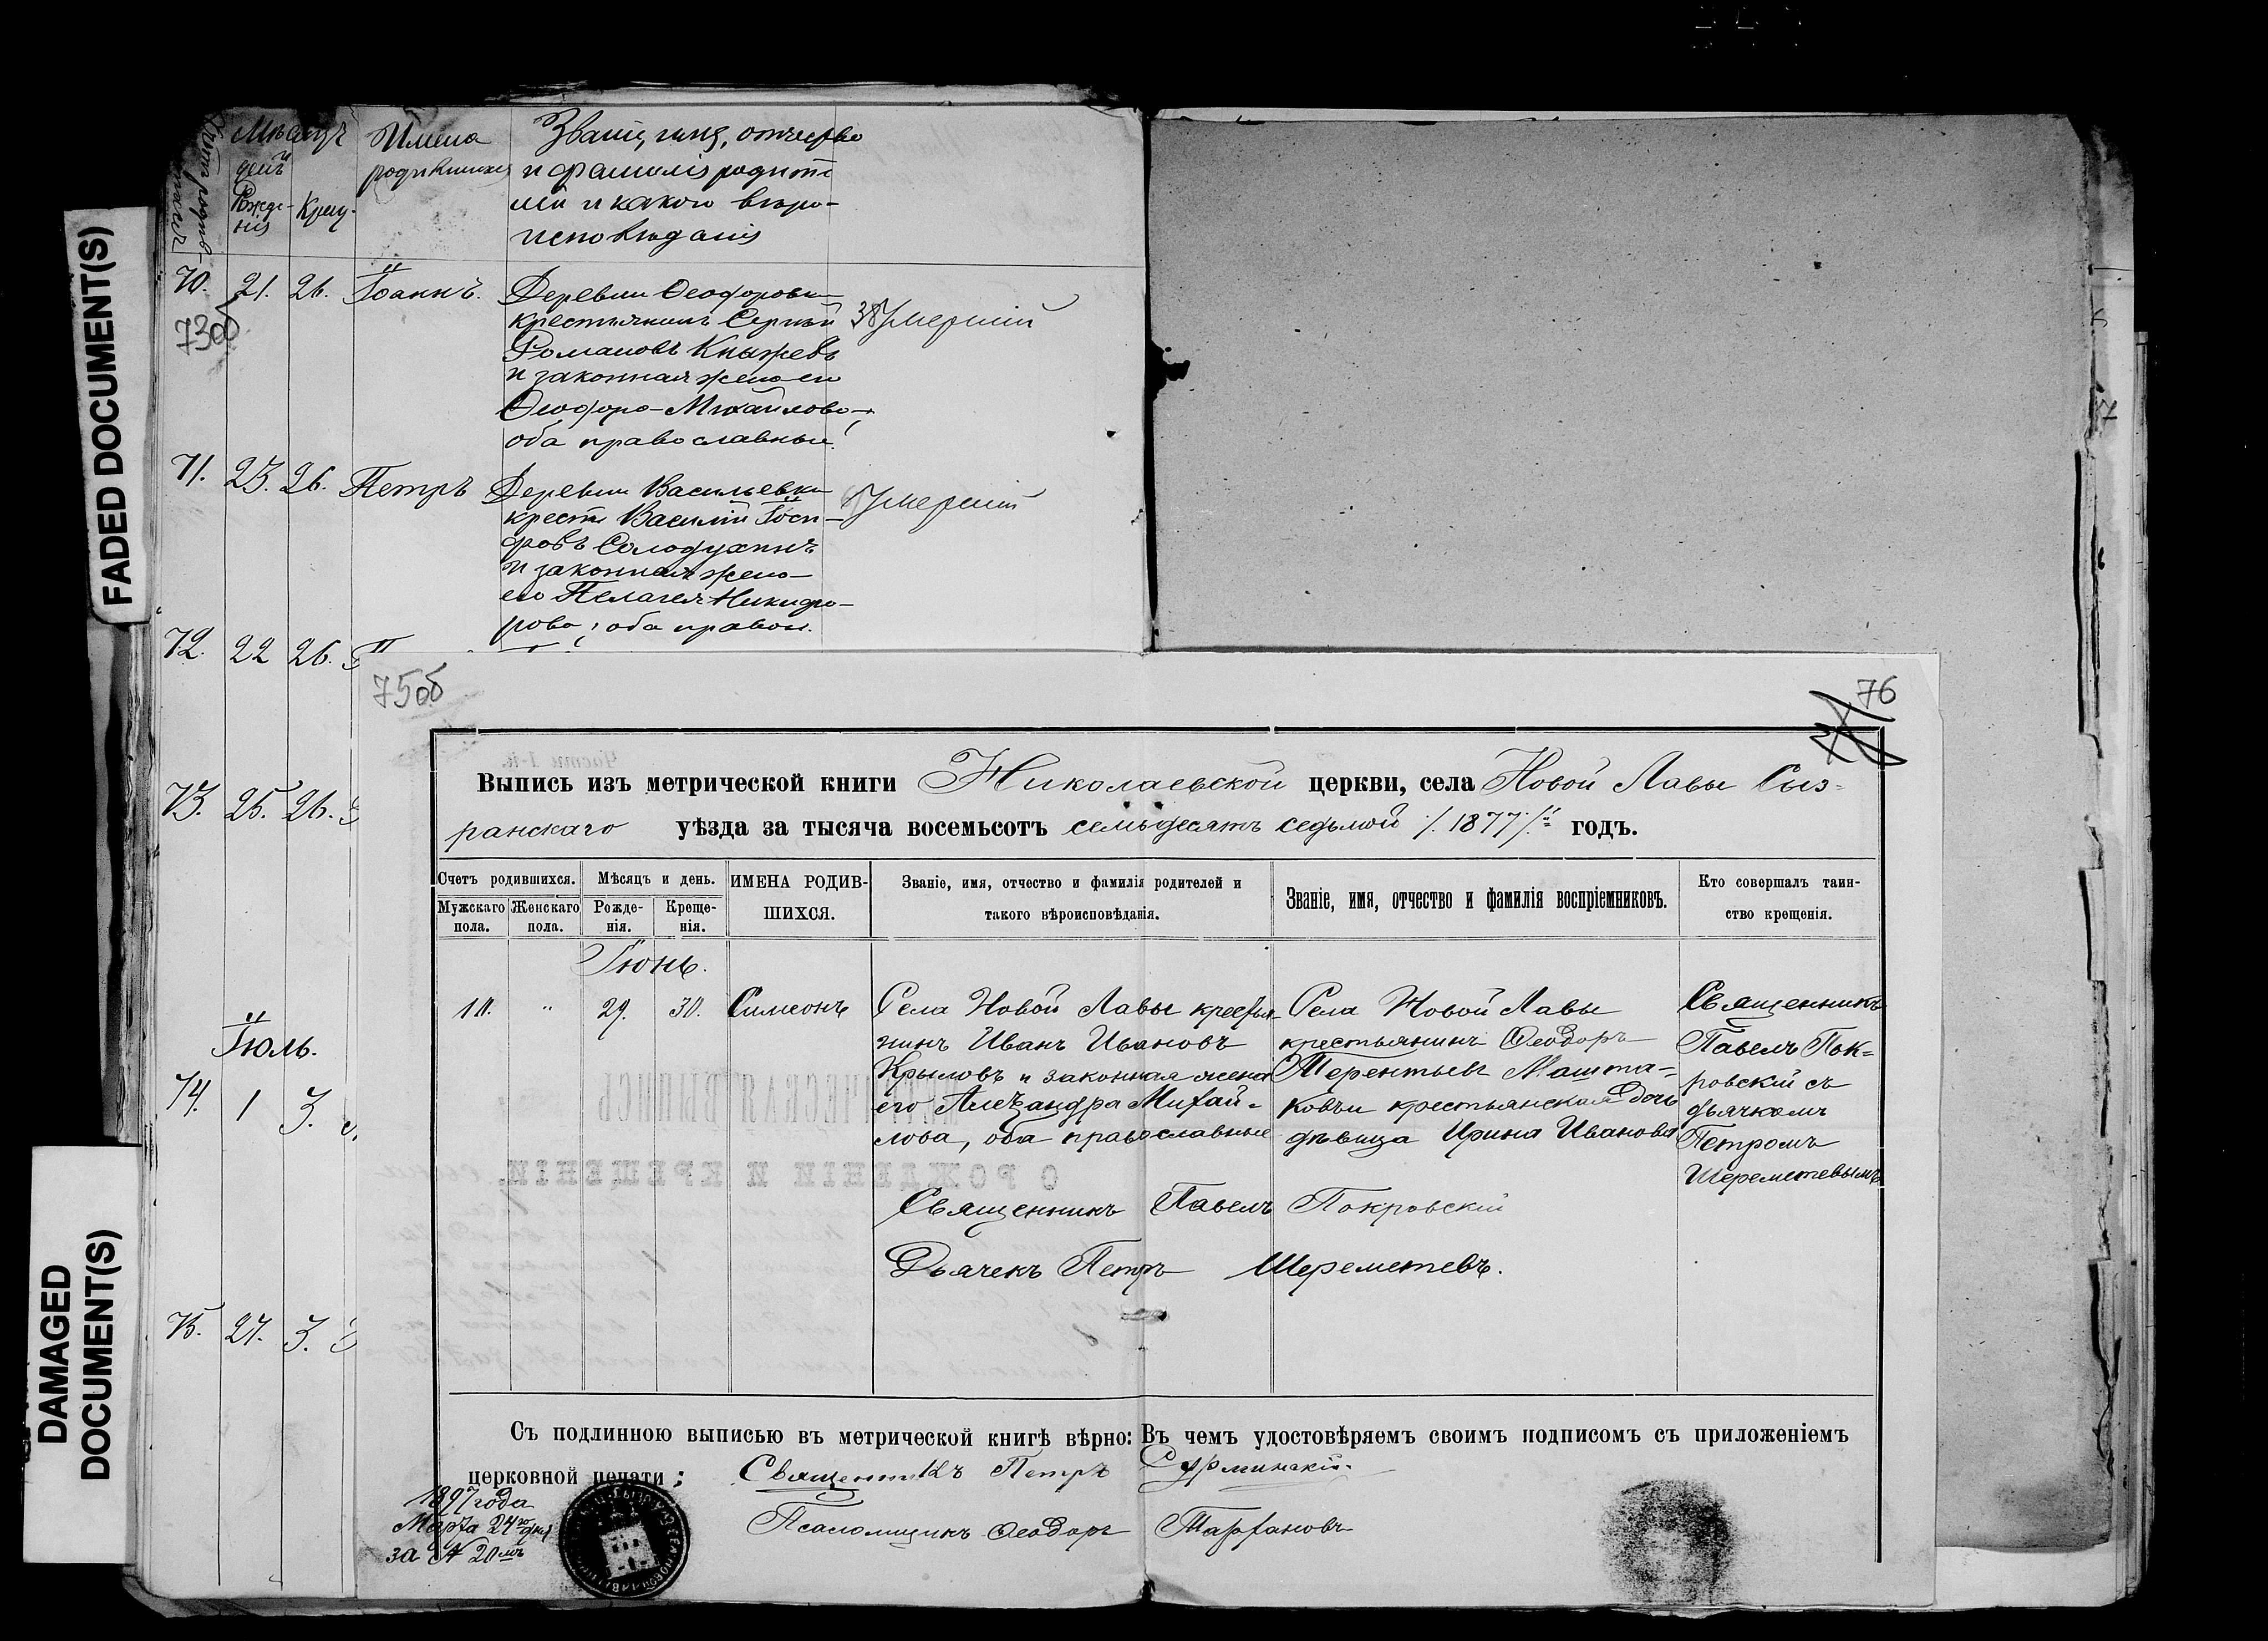 FADED DOCUMENT(S)
DAMAGED DOCUMENT(S)
Мѣсяцъ и дни
Рожде-нія
Крещ.
Имена родившихся
Званіе, имя, отчество
и фамилія родите
лей и какого вѣро-
исповѣданія
70. 21. 26. Іоаннъ. Деревни Ѳеодоровки
крестьянинъ Сергѣй
Романовъ Княжевъ
и законная жена его
Ѳеодора Михайлова,
оба православные.
Умершій
73об
71. 23. 26. Петръ Деревни Васильевки
крест. Василій Іоси-
фовъ Солодухинъ
и законная жена
его Пелагея Никифо-
рова, оба правосл.
Умершій
72. 22 26.
73. 25. 26.
Іюль.
74. 1 3.
75. 27. 3.
75об
76
Выпись изъ метрической книги Николаевской церкви, села Новой Лавы Сыз-
ранскаго уѣзда за тысяча восемьсотъ семьдесятъ седьмой /.1877./й годъ.
Счетъ родившихся.
Мужскаго пола.
Женскаго пола.
Мѣсяцъ и день.
Рожде-нія.
Креще-нія.
ИМЕНА РОДИВ-
ШИХСЯ.
Званіе, имя, отчество и фамилія родителей и
такого вѣроисповѣданія.
Званіе, имя, отчество и фамилія воспріемниковъ.
Кто совершалъ таин-
ство крещенія.
Іюнь.
10. " 29. 30. Симеонъ
Села Новой Лавы крестья-
нинъ Иванъ Ивановъ
Крыловъ и законная жена
его Александра Михай-
лова, оба православные
Села Новой Лавы
крестьянинъ Ѳеодоръ
Терентьевъ Машта-
ковъ и крестьянская дочь
дѣвица Ирина Иванова
Священникъ
Павелъ Пок-
ровскій съ
дьячкомъ
Петромъ
Шереметевымъ
Священникъ Павелъ Покровскій
Дьячекъ Петръ Шереметевъ.
Съ подлинною выписью въ метрической книгѣ вѣрно: Въ чемъ удостовѣряемъ своимъ подписомъ съ приложеніемъ
церковной печати; Священникъ Петръ
Псаломщикъ Ѳеодоръ
1897 года
Марта 24го дня
за № 20мъ